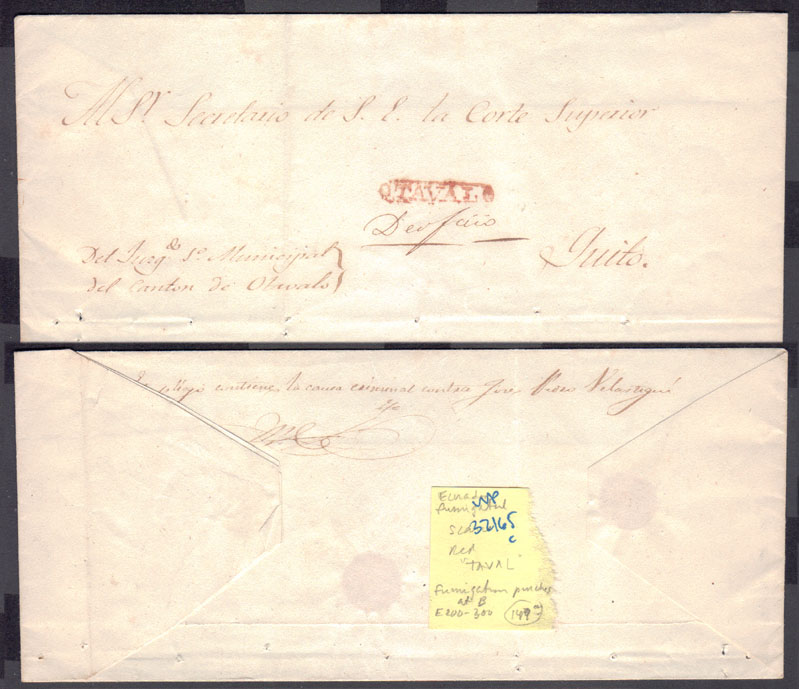 Al Sr. Secretario de S. E. la Corte Superior
OTAVALO
De oficio
Quito.
Del Juzgdo 1o Municipal
del Canton de Otavalo
pliego contiene la causa criminal contra Jose
fumigated
32165
c
Red
"TAVAL"
fumigation punches
at B
E200-300
149